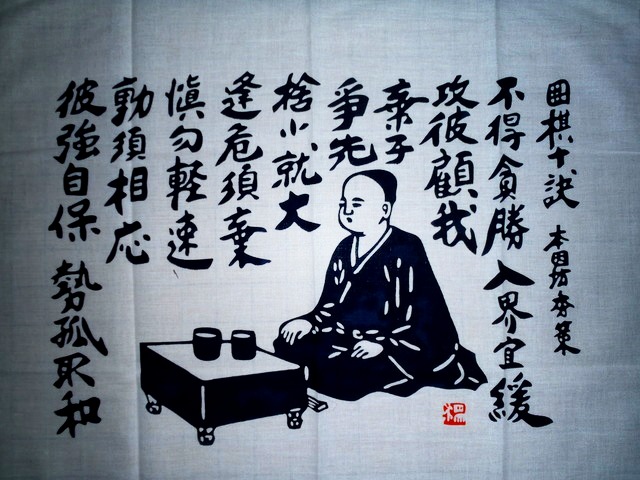 囲棋十訣 本因坊秀策
不得貪勝 入界宜緩
攻彼顧我
棄子
争先
捨小就大
逢危須棄
慎勿軽速
動須相応
彼強自保 勢孤取和